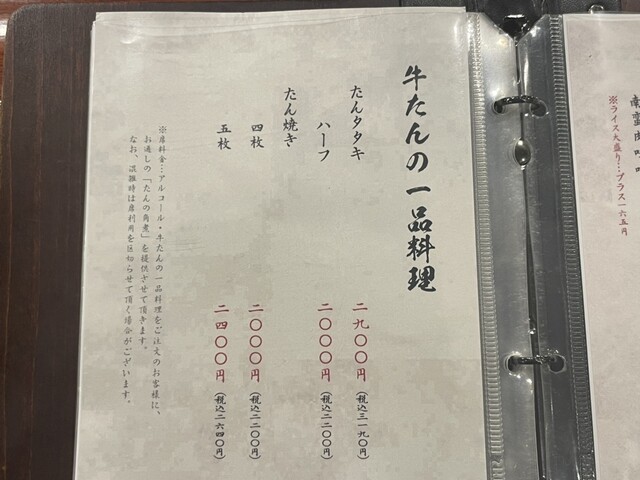 牛たんの一品料理
たんタタキ 二九〇〇円（税込三一九〇円）
ハーフ 二〇〇〇円（税込二二〇〇円）
たん焼き
四枚 二〇〇〇円（税込二二〇〇円）
五枚 二四〇〇円（税込二六四〇円）
※席料金…アルコール・牛たんの一品料理をご注文のお客様に、
お通しの「たんの角煮」を提供させて頂きます。
なお、混雑時は席利用を区切らせて頂く場合がございます。
※ライス大盛り…プラス一六五円